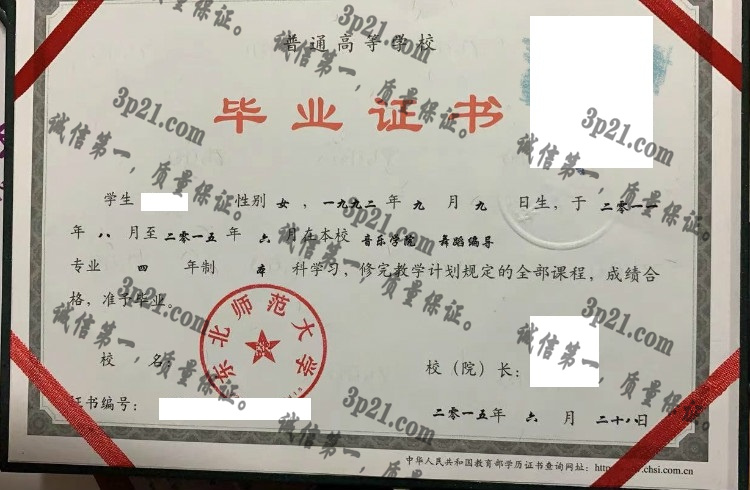 普通高等学校
毕业证书
学生 性别 女 ，一九九二 年 九 月 九 日生，于 二〇一一
年 八 月至 二〇一五 年 六 月在本校 音乐学院 舞蹈编导
专业 四 年制 本 科学习，修完教学计划规定的全部课程，成绩合
格，准予毕业。
东北师范大学
校 名：
校（院）长：
证书编号：
二〇一五年 六 月 二十八日
中华人民共和国教育部学历证书查询网址：http://www.chsi.com.cn
3p21.com
诚信第一，质量保证。
3p21.com
诚信第一，质量保证。
3p21.com
诚信第一，质量保证。
3p21.com
诚信第一，质量保证。
3p21.com
诚信第一，质量保证。
3p21.com
诚信第一，质量保证。